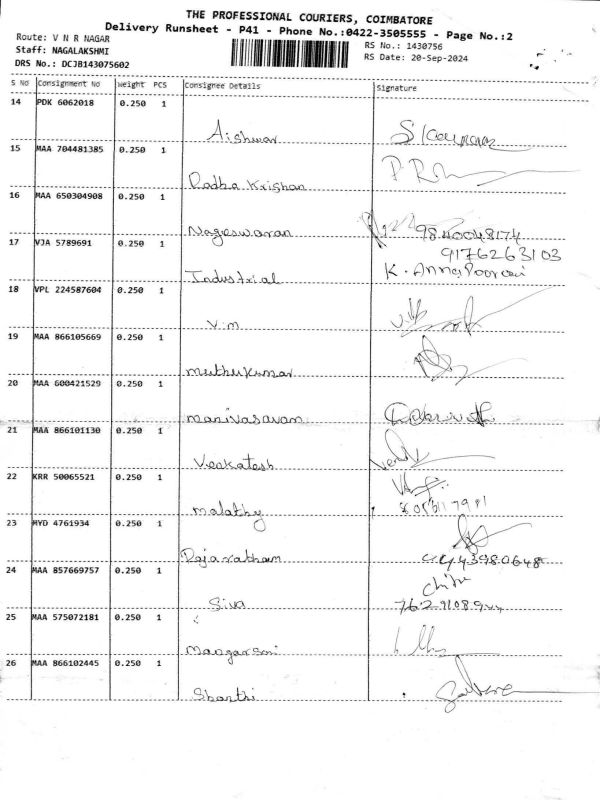 THE PROFESSIONAL COURIERS, COIMBATORE
Delivery Runsheet - P41 - Phone No.:0422-3505555 - Page No.:2
Route: V N R NAGAR
RS No.: 1430756
Staff: NAGALAKSHMI
RS Date: 20-Sep-2024
DRS No.: DCJB143075602
S No Consignment No Weight PCS Consignee Details Signature
14 PDK 6062018 0.250 1
Aishwar
15 MAA 704481385 0.250 1
Radha Krishan
16 MAA 650304908 0.250 1
Nageswaran 9840048174
17 VJA 5789691 0.250 1 9176263103
Industrial K. Annapoorani
18 VPL 224587604 0.250 1
V.M
19 MAA 866105669 0.250 1
Muthukumar
20 MAA 600421529 0.250 1
Manivasavam
21 MAA 866101130 0.250 1
Venkatesh
22 KRR 50065521 0.250 1
Malathy
23 MYD 4761934 0.250 1
Rajaratham
24 MAA 857669757 0.250 1
Siva
25 MAA 575072181 0.250 1
26 MAA 866102445 0.250 1
Sharthi